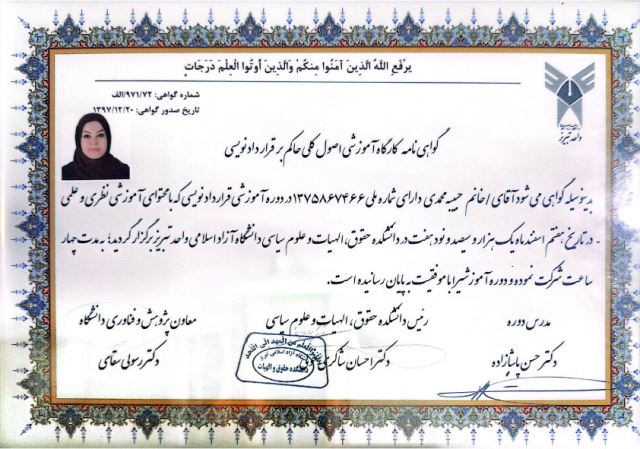 یرفع الله الذین آمنوا منکم والذین أوتوا العلم درجات
شماره گواهی: ۹۷۱/۷۲/الف
تاریخ صدور گواهی: ۱۳۹۷/۱۲/۲۰
واحد تبریز
گواهی نامه کارگاه آموزشی اصول کلی حاکم بر قرارداد نویسی
بدینوسیله گواهی می شود آقای / خانم حبیبه محمدی دارای شماره ملی ۱۳۷۵۸۶۷۴۶۶ در دوره آموزشی قرارداد نویسی که با محتوای آموزشی نظری و علمی
- در تاریخ هفتم اسفند ماه یک هزار و سیصد و نود هفت در دانشکده حقوق، الهیات و علوم سیاسی دانشگاه آزاد اسلامی واحد تبریز برگزار گردید؛ به مدت چهار
ساعت شرکت نموده و دوره آموز شیرا با موفقیت به پایان رسانیده است.
مدرس دوره
رئیس دانشکده حقوق، الهیات و علوم سیاسی
معاون پژوهش و فناوری دانشگاه
دکتر حسن پاشازاده
دکتر احسان شاکری
دکتر رسولی سقای
العلم من المهد الی اللحد
دانشگاه آزاد اسلامی تبریز
دانشکده حقوق و الهیات